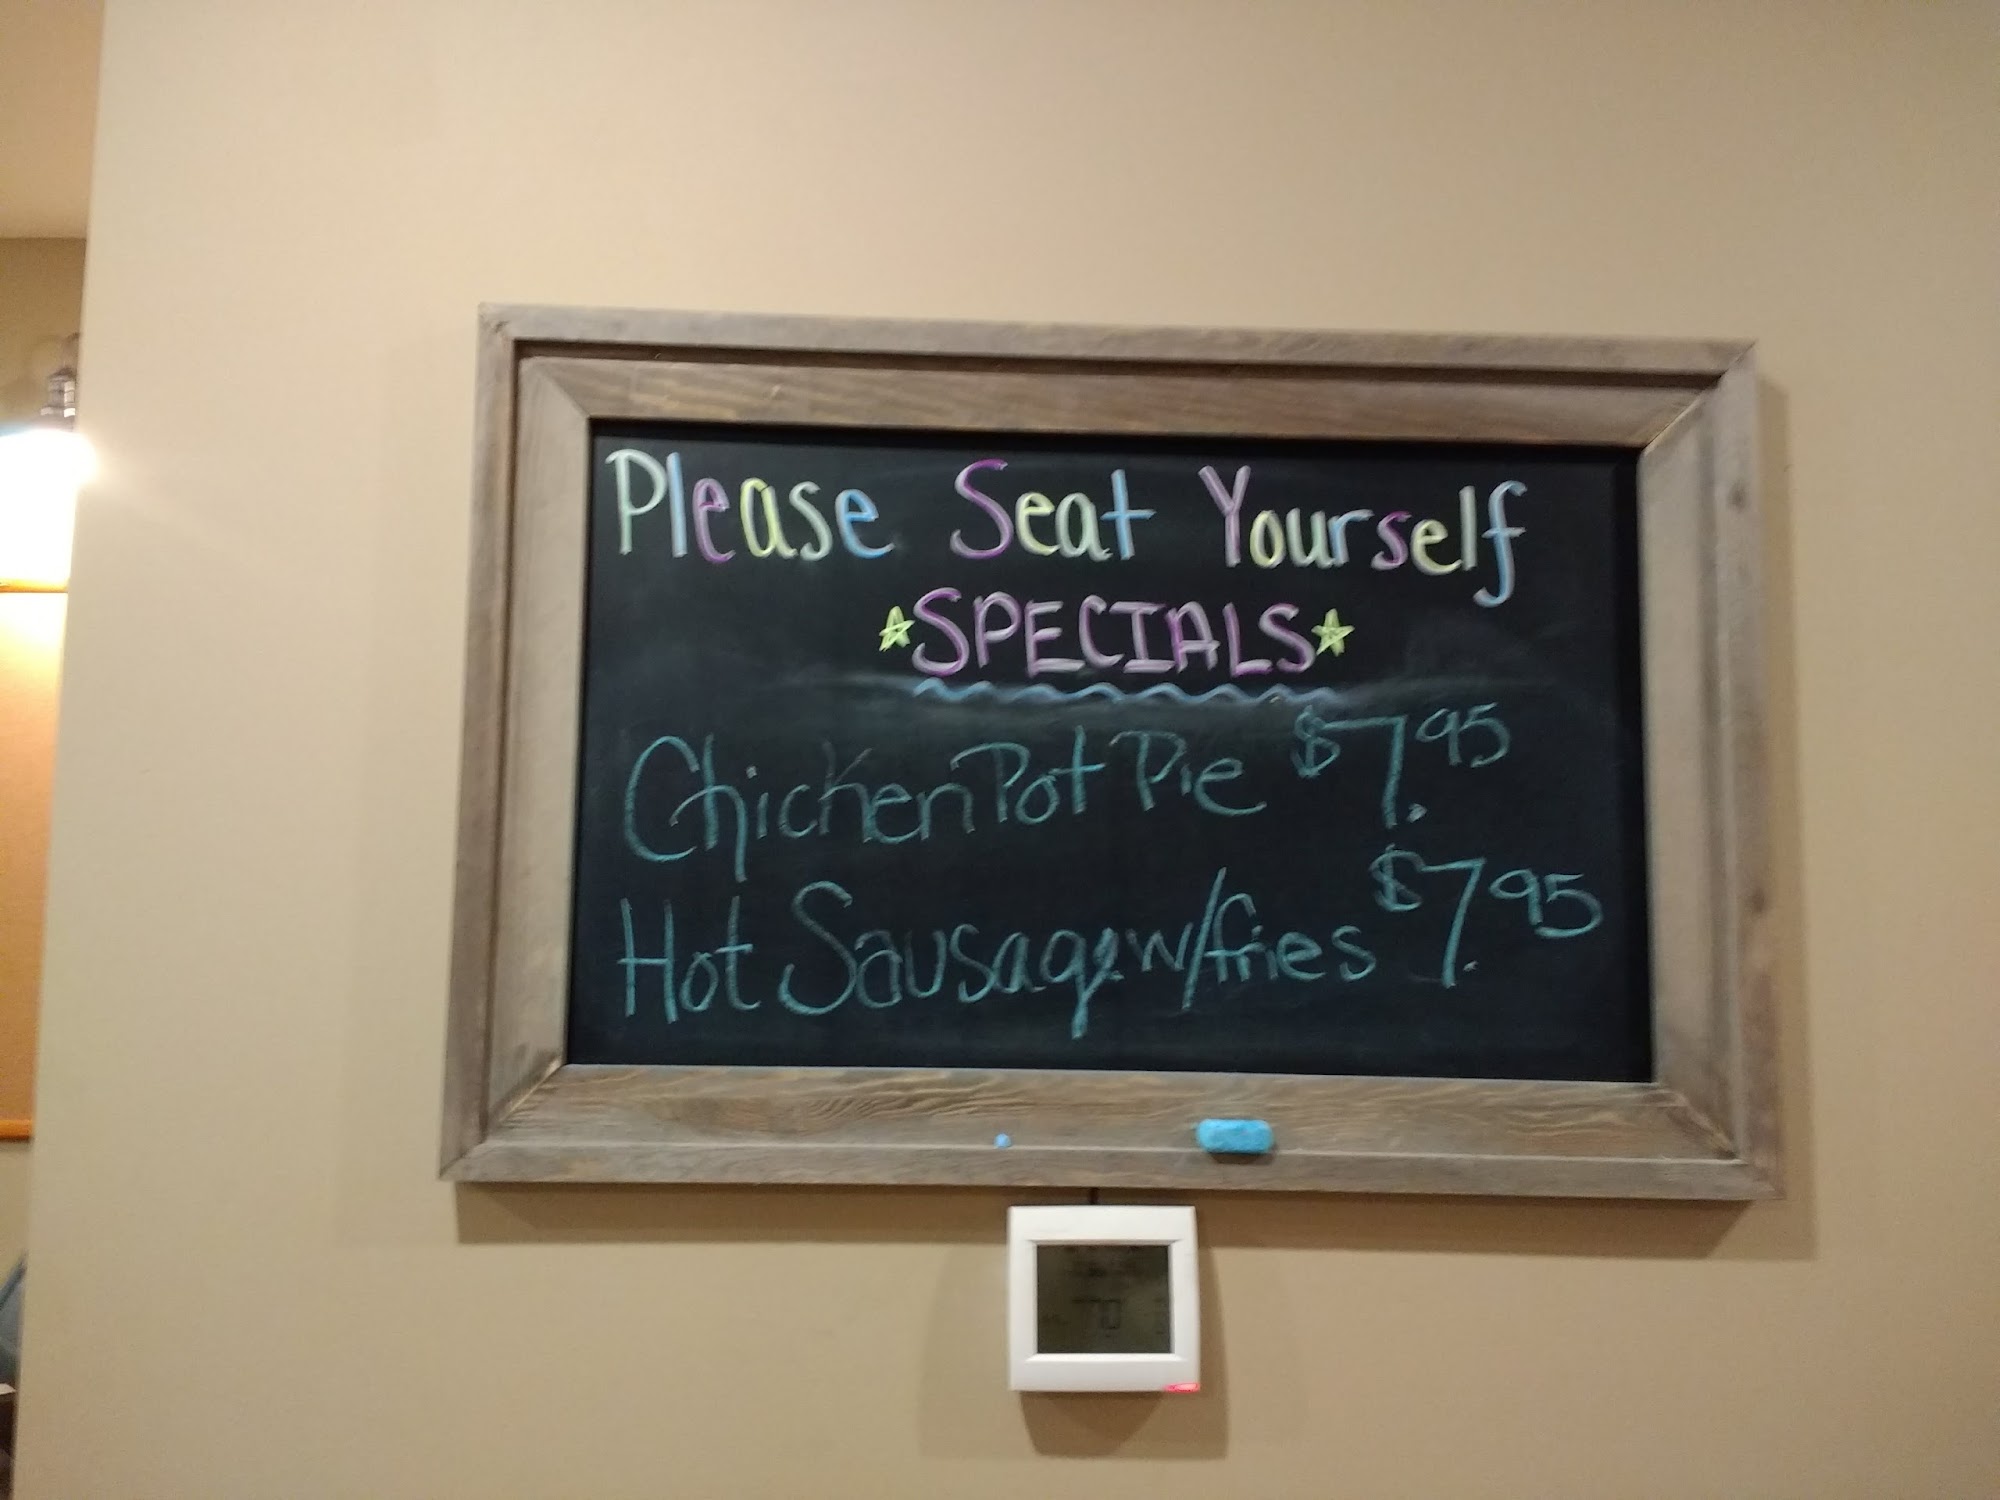 Please Seat Yourself
SPECIALS
Chicken Pot Pie $7.95
Hot Sausage w/fries $7.95
70